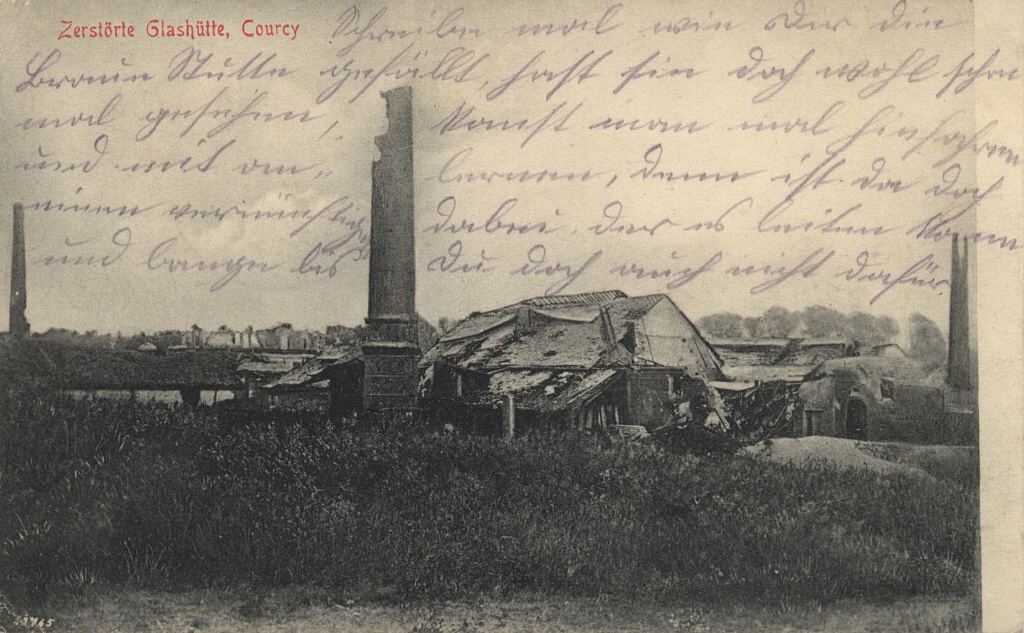 Zerstörte Glashütte, Courcy
Schreibe mal wie Dir die
Braune Stutte gefällt, hast sie doch wohl schon
mal gesehen, kanst man mal hinfahren
und mit an, lernen, denn ist da doch
einen vernünftigen dabei, der es leiten kann
und bange bis Du doch auch nicht dafür